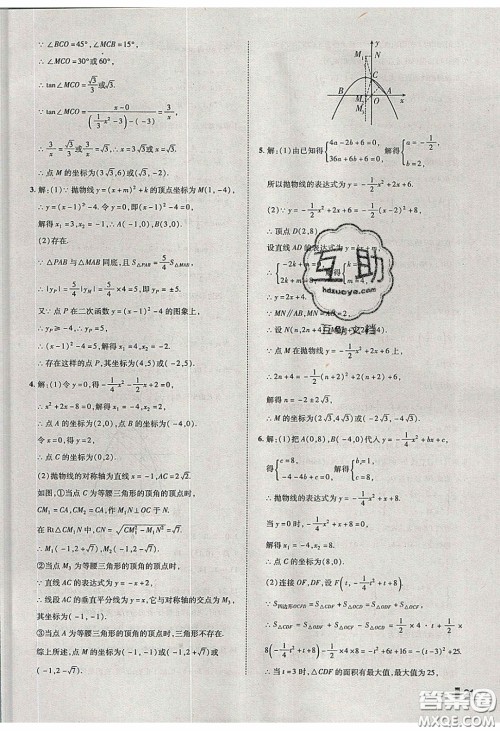 ∵ ∠BCO=45°，∠MCB=15°，
∴ ∠MCO=30°或60°，
∴ tan∠MCO=√3/3或√3.
∵ tan∠MCO=(x-0)/((1/3)x²-3)-(-3)=3/x，
∴ 3/x=√3/3或3/x=√3，∴ x=3√3或x=√3，
∴ 点M的坐标为(3√3,6)或(√3,-2).
3.解：(1)∵ 抛物线y=(x+m)²+k的顶点坐标为M(1,-4)，
∴ y=(x-1)²-4. 令y=0，即(x-1)²-4=0，
解得x₁=3，x₂=-1，∴ A(-1,0)，B(3,0).
(2)存在.
∵ △PAB与△MAB同底，且S△PAB=5/4 S△MAB，
∴ |yP|=5/4|yM|=5/4×4=5，∴ yP=±5.
又∵ 点P在二次函数y=(x-1)²-4的图象上，
∴ yP≥-4，∴ yP=5.
∴ (x-1)²-4=5，解得x₁=4，x₂=-2，
∴ 存在这样的点P，其坐标为(4,5)或(-2,5).
4.解：(1)令y=0，得-1/4x²-1/2x+2=0，
∴ x²+2x-8=0，解得x₁=-4，x₂=2，
∴ 点A的坐标为(2,0)，点B的坐标为(-4,0).
令x=0，得y=2，
∴ 点C的坐标为(0,2).
(2)抛物线的对称轴为直线x=-1，AC=2√2.
如图，①当点A为等腰三角形的顶角的顶点时，
CM₁=CA，CM₂=CA，作M₁N⊥OC于N.
在Rt△CM₁N中，CN=√(CM₁²-M₁N²)=√7，
∴ M₁(-1,2+√7)，M₂(-1,2-√7).
②当点M为等腰三角形的顶角的顶点时，
∵ 直线AC的表达式为y=-x+2，
∴ 线段AC的垂直平分线为y=x，它与对称轴的交点为M，
其坐标为(-1,-1).
③当点A为等腰三角形的顶角的顶点时，三角形不存在.
综上所述，点M的坐标为(-1,-1)或(-1,2+√7)或
(-1,2-√7).
y
M₁
N
C
B
O
A
x
5.解：(1)由已知得{4a-2b+6=0, 36a+6b+6=0, 解得{a=-1/2, b=2,
所以抛物线的表达式为y=-1/2x²+2x+6.
(2)∵ y=-1/2x²+2x+6=-1/2(x-2)²+8，
∴ 顶点D(2,8).
设直线AD的表达式为
∵ MN∥AB，MN=AB，
∵ 点M在抛物线y=-1/2x²+2x+6上，
解得n=-2±2√3.
6.解：(1)把A(0,8)，B(-4,0)代入y=-1/4x²+bx+c，
得{c=8, -4-4b+c=0, 解得{b=1, c=8,
∴ 抛物线的表达式为y=-1/4x²+x+8.
当y=0时，-1/4x²+x+8=0，
解得x₁=-4，x₂=8，
∴ 点C的坐标为(8,0).
(2)连接OF,DF，设F(t,-1/4t²+t+8).
∵ S四边形OCFD=S△CDF+S△OCD=S△ODF+S△OCF，
∴ S△CDF=S△ODF+S△OCF-S△OCD=1/2×4·t+1/2×
8(-1/4t²+t+8)-1/2×4×8=-t²+6t+16=-(t-3)²+25，
∴ 当t=3时，△CDF的面积有最大值，最大值为25，
互助
hdzuoye.com
互助文档
答案圈
MXQE.COM